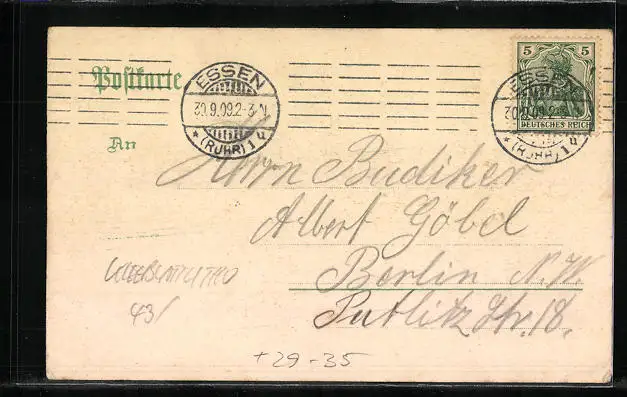 Postkarte
ESSEN
30.9.09.2-3N
* (RUHR) 1 q
5 5
DEUTSCHES REICH
ESSEN
30.9.09.2-3N
* (RUHR) 1 q
An
Herrn Budiker
Albert Göbel
Berlin N.W.
Putlitz Str. 18.
43/
+29-35